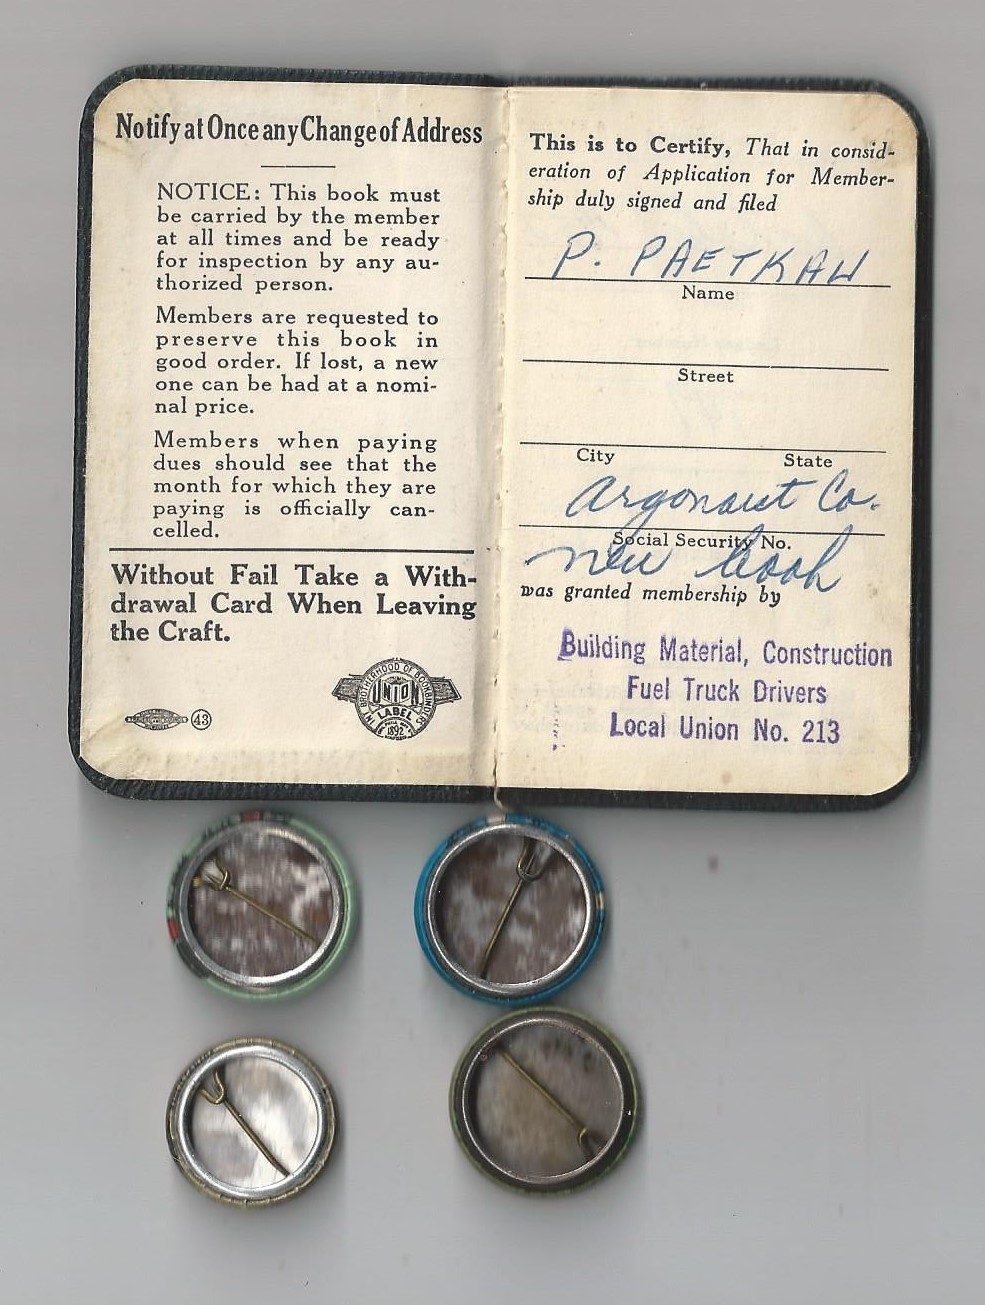 Notify at Once any Change of Address
NOTICE: This book must
be carried by the member
at all times and be ready
for inspection by any au-
thorized person.
Members are requested to
preserve this book in
good order. If lost, a new
one can be had at a nomi-
nal price.
Members when paying
dues should see that the
month for which they are
paying is officially can-
celled.
Without Fail Take a With-
drawal Card When Leaving
the Craft.
43
INT. BROTHERHOOD OF BOOKBINDERS
UNION
LABEL
1892
This is to Certify, That in consid-
eration of Application for Member-
ship duly signed and filed
P. PAETKAU
Name
Street
City State
Argonaut Co.
Social Security No.
new book
was granted membership by
Building Material, Construction
Fuel Truck Drivers
Local Union No. 213